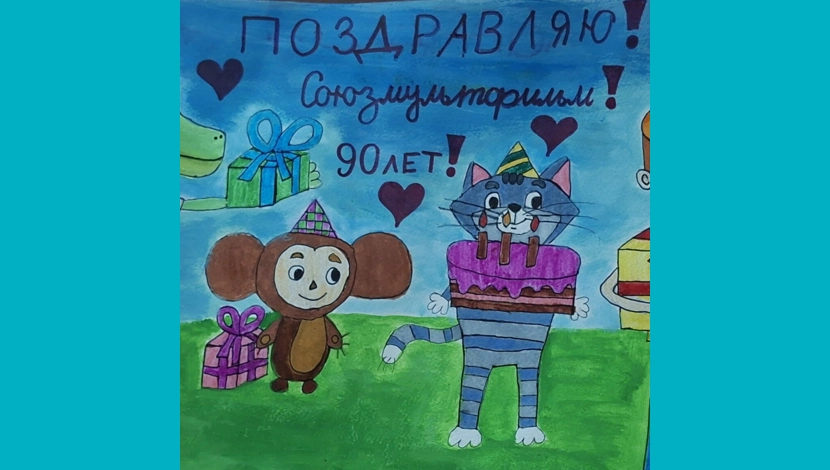 ПОЗДРАВЛЯЮ!
Союзмультфильм!
90 ЛЕТ!